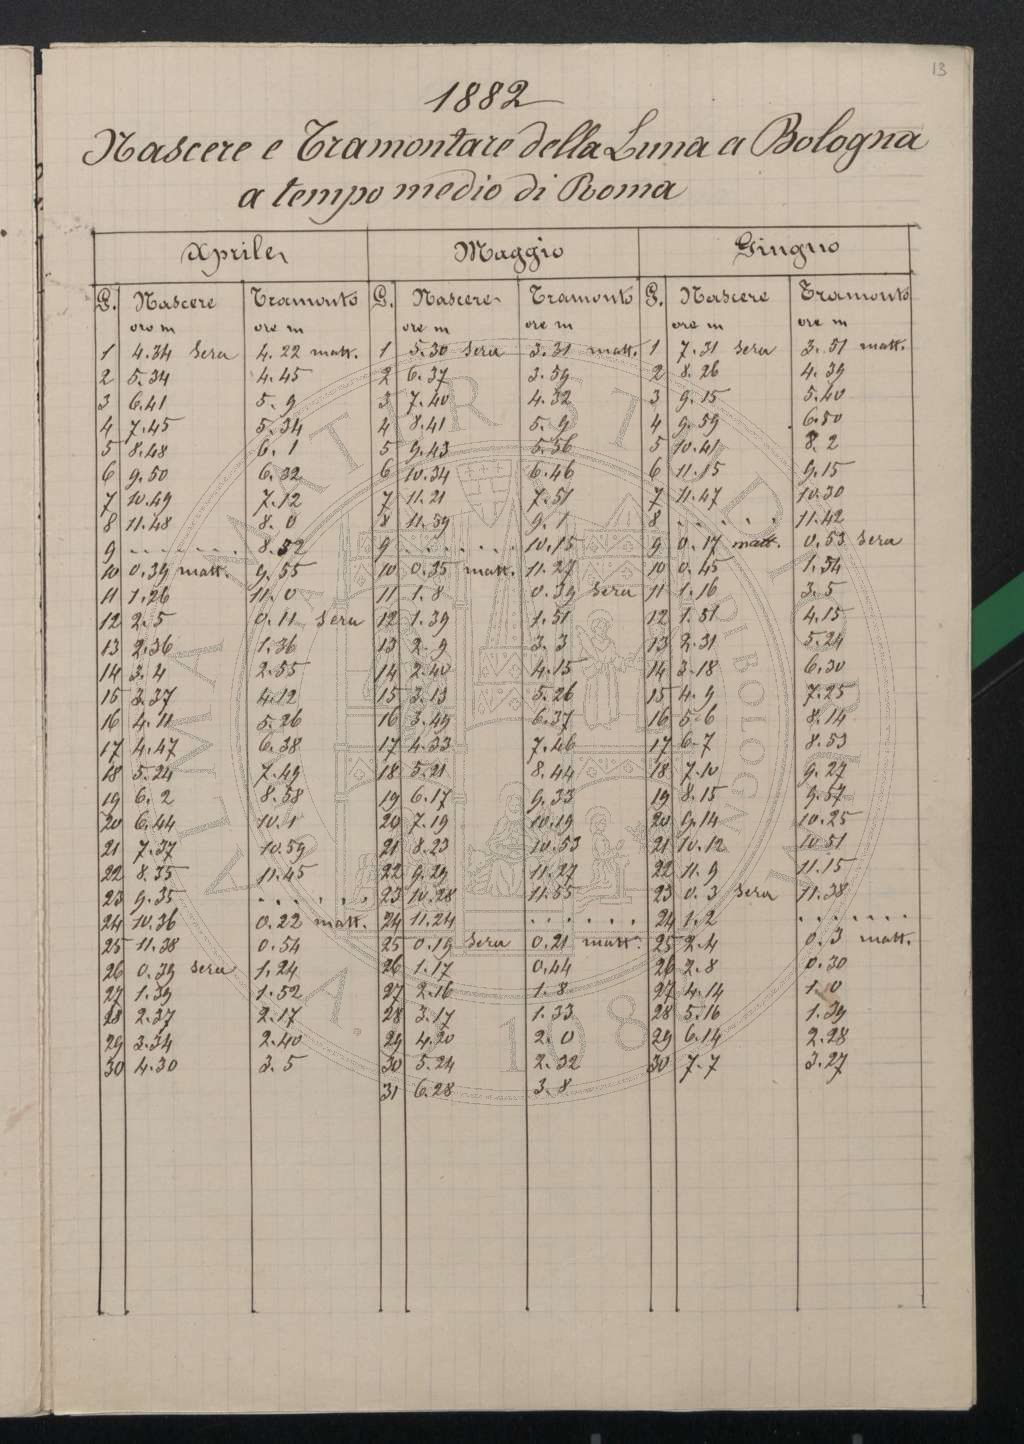 13
1882
Nascere e Tramontare della Luna a Bologna
a tempo medio di Roma
Aprile Maggio Giugno
G. Nascere Tramonto G. Nascere Tramonto G. Nascere Tramonto
ore m ore m ore m ore m ore m ore m
1 4.34 sera 4.22 matt. 1 5.30 sera 3.31 matt. 1 7.31 sera 3.51 matt.
2 5.34 4.45 2 6.37 3.59 2 8.26 4.39
3 6.41 5.9 3 7.40 4.32 3 9.15 5.40
4 7.45 5.34 4 8.41 5.9 4 9.59 6.50
5 8.48 6.1 5 9.43 5.56 5 10.41 8.2
6 9.50 6.32 6 10.34 6.46 6 11.15 9.15
7 10.49 7.12 7 11.21 7.51 7 11.47 10.30
8 11.48 8.0 8 11.59 9.1 8 ...... 11.42
9 ....... 8.52 9 ....... 10.15 9 0.17 matt. 0.53 sera
10 0.39 matt. 9.55 10 0.35 matt. 11.27 10 0.45 1.54
11 1.26 11.0 11 1.8 0.39 sera 11 1.16 3.5
12 2.5 0.11 sera 12 1.39 1.51 12 1.51 4.15
13 2.36 1.36 13 2.9 3.3 13 2.31 5.24
14 3.4 2.55 14 2.40 4.15 14 3.18 6.30
15 3.37 4.12 15 3.13 5.26 15 4.9 7.25
16 4.11 5.26 16 3.49 6.37 16 5.6 8.14
17 4.47 6.38 17 4.33 7.46 17 6.7 8.53
18 5.24 7.49 18 5.21 8.44 18 7.10 9.27
19 6.2 8.58 19 6.17 9.33 19 8.15 9.57
20 6.44 10.1 20 7.19 10.19 20 9.14 10.25
21 7.37 10.59 21 8.23 10.53 21 10.12 10.51
22 8.35 11.45 22 9.29 11.27 22 11.9 11.15
23 9.35 ...... 23 10.28 11.55 23 0.3 sera 11.38
24 10.36 0.22 matt. 24 11.24 ...... 24 1.2 ......
25 11.38 0.54 25 0.19 sera 0.21 matt. 25 2.4 0.3 matt.
26 0.39 sera 1.24 26 1.17 0.44 26 2.8 0.30
27 1.39 1.52 27 2.16 1.8 27 4.14 1.0
28 2.37 2.17 28 3.17 1.33 28 5.16 1.39
29 3.34 2.40 29 4.20 2.0 29 6.14 2.28
30 4.30 3.5 30 5.24 2.32 30 7.7 3.27
31 6.28 3.8